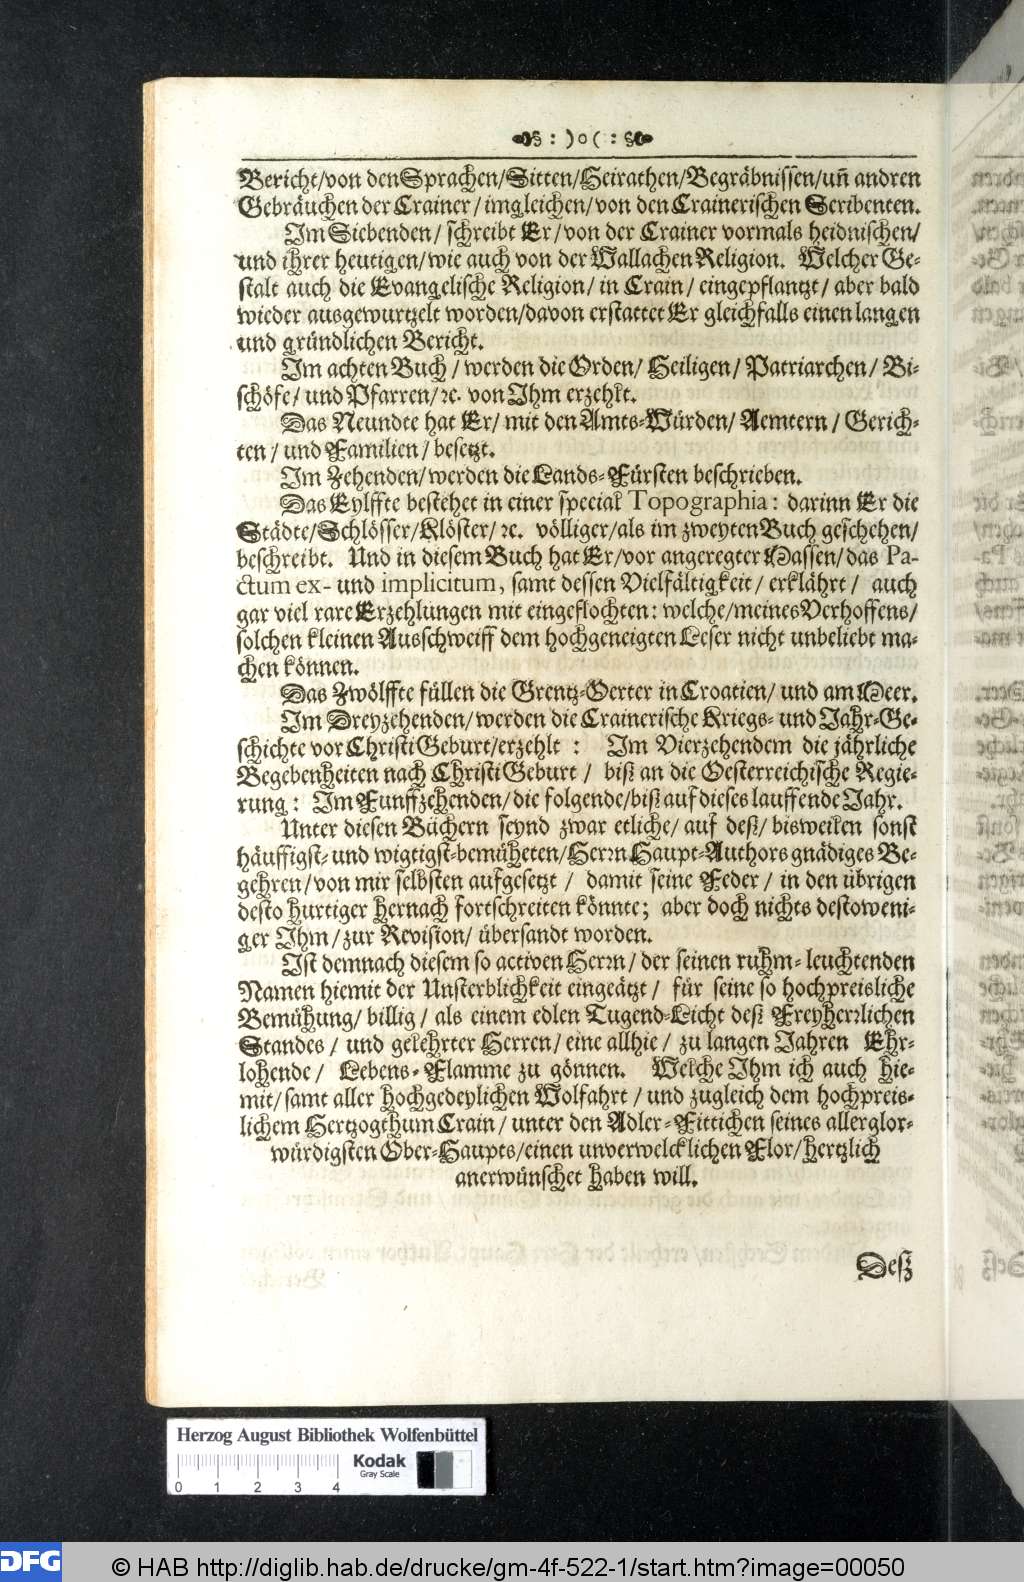 § : ) o ( : §
Bericht/von den Sprachen/Sitten/Heirathen/Begräbnissen/uñ andren
Gebräuchen der Crainer/imgleichen/von den Crainerischen Scribenten.
Im Siebenden/ schreibt Er/von der Crainer vormals heidnischen/
und ihrer heutigen/wie auch von der Wallachen Religion. Welcher Ge-
stalt auch die Evangelische Religion/ in Crain/ eingepflantzt/ aber bald
wieder ausgewurtzelt worden/davon erstattet Er gleichfalls einen langen
und gründlichen Bericht.
Im achten Buch/ werden die Orden/ Heiligen/ Patriarchen/ Bi-
schöfe/ und Pfarren/ ꝛc. von Ihm erzehlt.
Das Neundte hat Er/ mit den Amts-Würden/ Aemtern/ Gerich-
ten/ und Familien/ besetzt.
Im Zehenden/werden die Lands-Fürsten beschrieben.
Das Eylffte bestehet in einer special Topographia: darinn Er die
Städte/Schlösser/Klöster/ ꝛc. völliger/als im zweyten Buch geschehen/
beschreibt. Und in diesem Buch hat Er/vor angeregter Massen/das Pa-
ctum ex- und implicitum, samt dessen Vielfältigkeit/ erklährt/ auch
gar viel rare Erzehlungen mit eingeflochten: welche/meines Verhoffens/
solchen kleinen Ausschweiff dem hochgeneigten Leser nicht unbeliebt ma-
chen können.
Das Zwölffte füllen die Grentz-Oerter in Croatien/ und am Meer.
Im Dreyzehenden/werden die Crainerische Kriegs- und Jahr-Ge-
schichte vor Christi Geburt/erzehlt: Im Vierzehendem die jährliche
Begebenheiten nach Christi Geburt/ biß an die Oesterreichische Regie-
rung: Im Funffzehenden/die folgende/biß auf dieses lauffende Jahr.
Unter diesen Büchern seynd zwar etliche/ auf deß/ bisweilen sonst
häuffigst- und wigtigst-bemüheten/Herrn Haupt-Authors gnädiges Be-
gehren/von mir selbsten aufgesetzt/ damit seine Feder/ in den übrigen
desto hurtiger hernach fortschreiten könnte; aber doch nichts destoweni-
ger Ihm/zur Revision/ übersandt worden.
Ist demnach diesem so activen Herrn/ der seinen ruhm-leuchtenden
Namen hiemit der Unsterblichkeit eingeätzt/ für seine so hochpreisliche
Bemühung/ billig/ als einem edlen Tugend-Licht deß Freyherrlichen
Standes/ und gelehrter Herren/ eine allhie/ zu langen Jahren Ehr-
lohende/ Lebens-Flamme zu gönnen. Welche Ihm ich auch hie-
mit/samt aller hochgedeylichen Wolfahrt/ und zugleich dem hochpreis-
lichem Hertzogthum Crain/ unter den Adler-Fittichen seines allerglor-
würdigsten Ober-Haupts/einen unverwelcklichen Flor/hertzlich
anerwünschet haben will.
Deß
Herzog August Bibliothek Wolfenbüttel
Kodak
Gray Scale
0 1 2 3 4
DFG © HAB http://diglib.hab.de/drucke/gm-4f-522-1/start.htm?image=00050